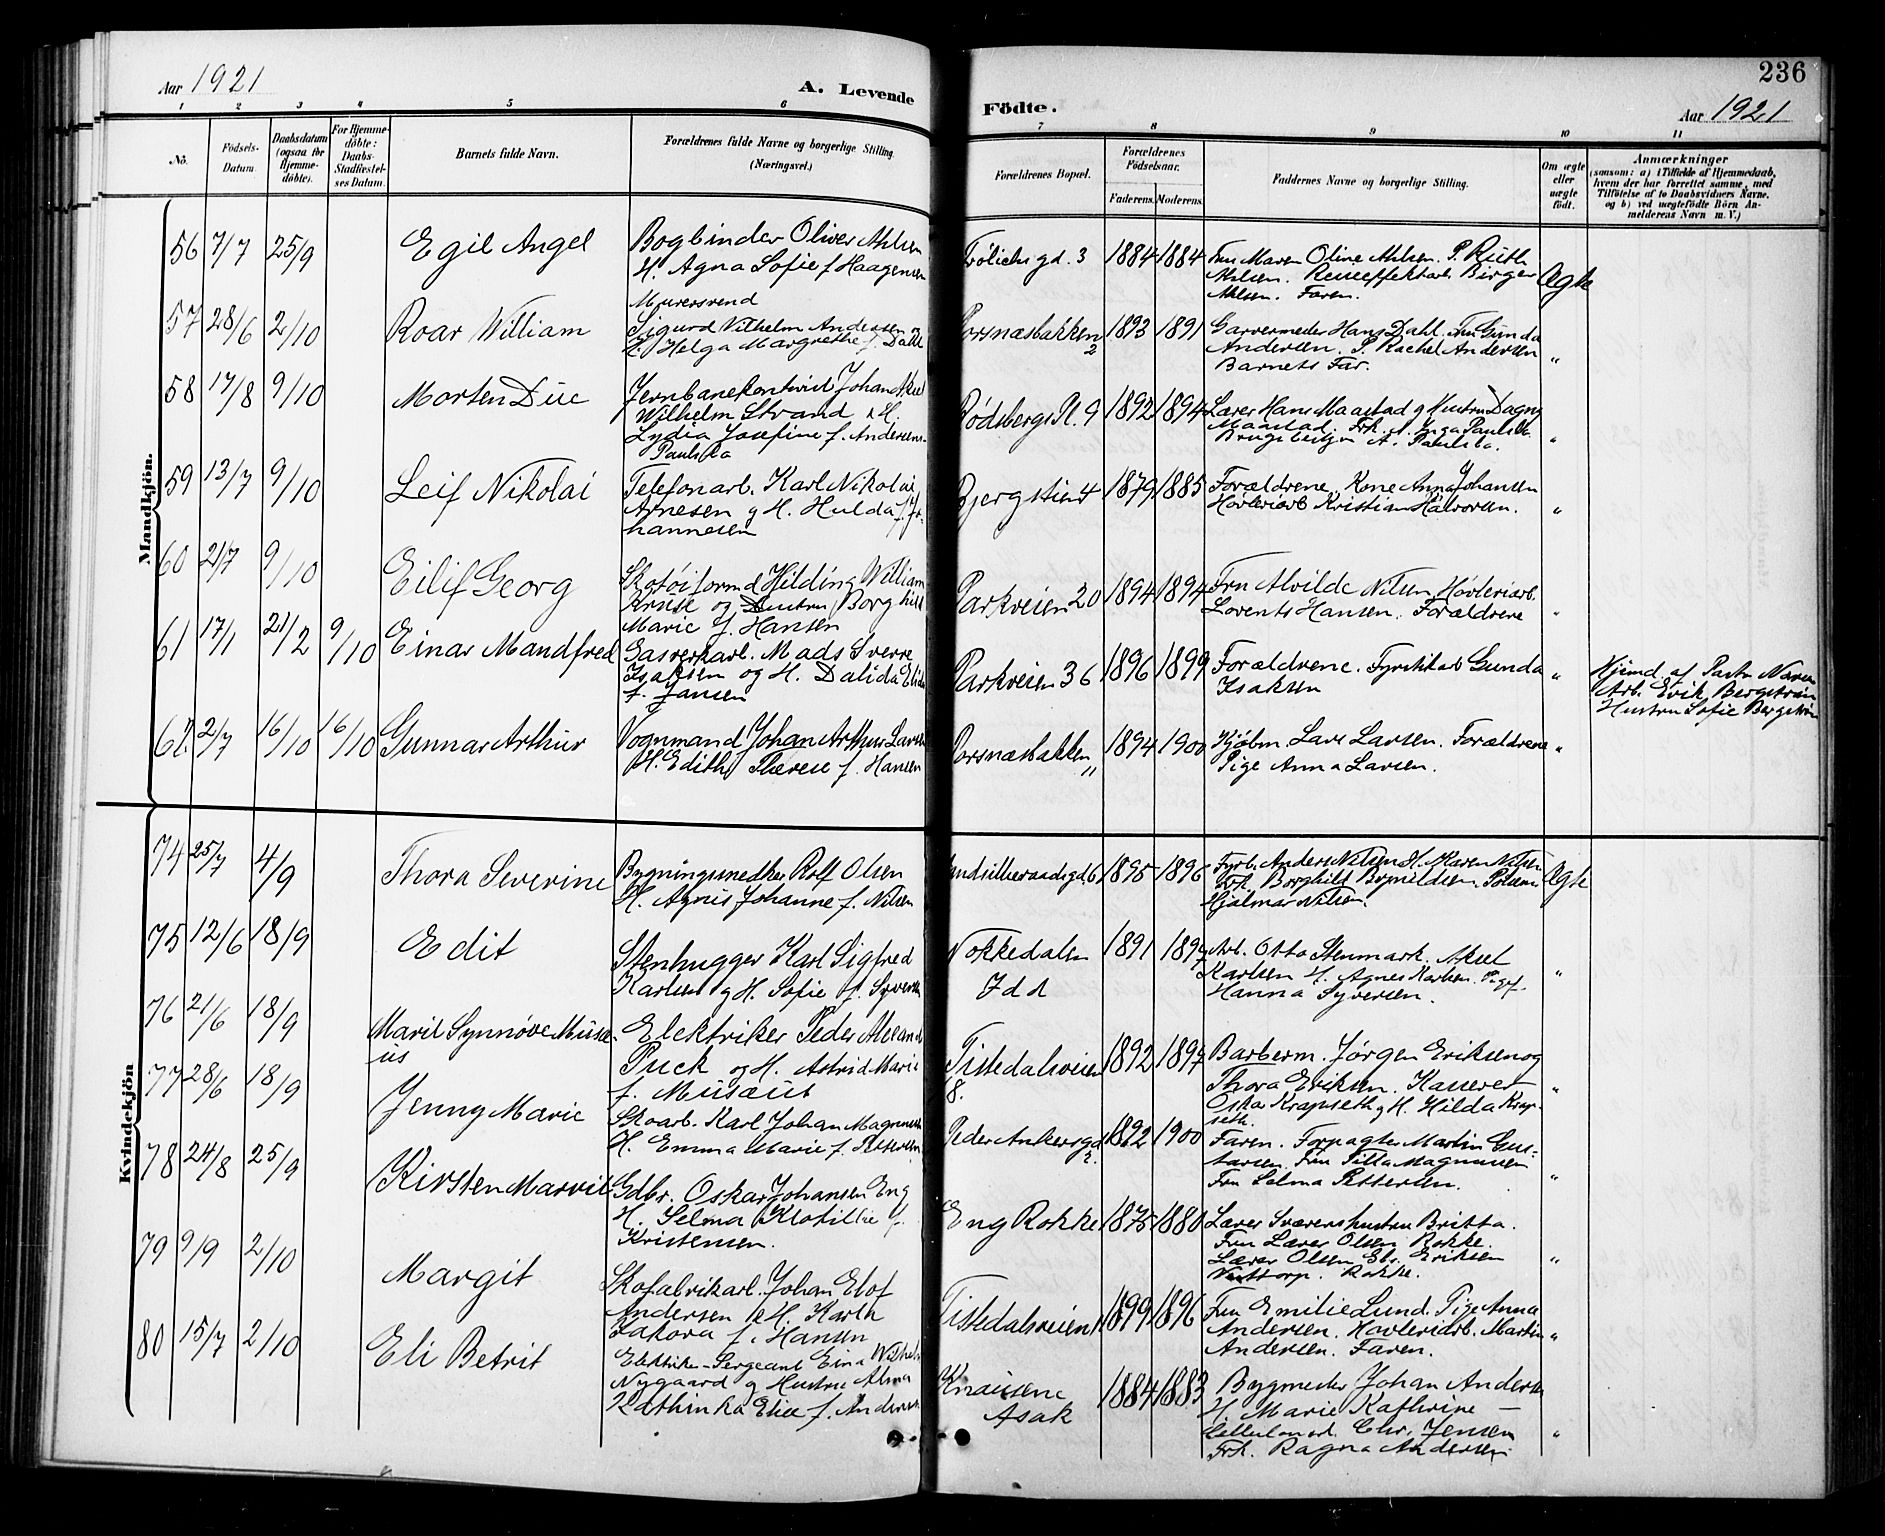 Aar 1921
A. Levende
Födte.
236
Aar 1921
1 2 3 4 5 6 7 8 9 10 11
No.
Födsels-Datum.
Daabsdatum (ogsaa for Hjemme-döbte).
For Hjemme-döbte: Daabs-Stadfæstel-ses Datum.
Barnets fulde Navn.
Forældrenes fulde Navne og borgerlige Stilling. (Næringsvei.)
Forældrenes Bopæl.
Forældrenes Födselsaar.
Faderens. Moderens.
Faddernes Navne og borgerlige Stilling.
Om ægte eller uægte födt.
Anmærkninger
(saasom: a) i Tilfælde af Hjemmedaab,
hvem der har forrettet samme, med
Tilföielse af to Daabsvidners Navne.
og b) ved uægtefödte Börn An-
melderens Navn m. V.)
Mandkjön.
56 7/7 25/9 Egil Angel
Bogbinder Oliver Ahlsen
H. Agna Sofie f. Haagensen
Frölichs gd. 3 1884 1884
Fru Maren Oline Ahlsen. P. Ruth
Ahlsen. Birger
Ahlsen. Faren.
Ægte
57 28/6 2/10 Roar William
Murersvend
Sigurd Vilhelm Andersen og
H. Helga Margrethe f. Dahl
Porsnæsbakken 2 1893 1891
Garvermester Hans Dahl. Fru Gunda
Andersen. P. Rachel Andersen
Barnets Far.
"
58 17/8 9/10 Morten Due
Jernbanekontorist Johan Aksel
Wilhelm Strand & H.
Lydia Josefine f. Andersen-
Paulsbo
Rødsbergs Pl. 9 1892 1894
Lærer Hans Maastad og Hustru Dagny
Maastad. Frk. Inga Paulsbo.
A. Paulsbo.
"
59 13/7 9/10 Leif Nikolai
Telefonarb. Karl Nikolai
Arnesen og H. Hulda f. Jo-
hannesen
Bjergstien 4 1879 1885
Forældrene. Kone Anna Johansen
Høvleriarb Kristian Halvorsen.
"
60 21/7 9/10 Eilif Georg
Skotøiformd Hilding William
Kruse og Hustru Borghild
Marie f. Hansen
Parkveien 20 1894 1894
Fru Alvilde Nilsen Høvleriarb.
Lorents Hansen. Forældrene
"
61 17/1 21/2 9/10 Einar Mandfred
Gasverkarb. Mads Sverre
Isaksen og H. Dalida Elida
f. Jansen
Parkveien 36 1896 1899
Forældrene. Fyrstikarb Gunda
Isaksen
"
Hjemd. af Pastor
Arb. Erik Bergström
Hustru Sofie Bergström
62. 2/7 16/10 16/10 Gunnar Arthur
Vognmand Johan Arthur Larsen
H. Edith Therese f. Hansen
Porsnæsbakken 11 1894 1900
Kjøbm. Lars Larsen. Forældrene
Pige Anna Larsen.
"
Kvindekjön
74 25/7 4/9 Thora Severine
Bygningssnedker Rolf Olsen
H. Agnes Johanne f. Nilsen
1895 1896
Fyrb. Anders Nilsen H. Maren Nilsen
Frk. Borghild
Hjalmar Nilsen.
Ægte
75 12/6 18/9 Edit
Stenhugger Karl Sigfred
Karlsen og H. Sofie f. Syversen
Nokkedalen
Idd
1891
Arb. Otto Stenmark. Aksel
Karlsen H. Agnes Karlsen. Pige
Hanna Syversen.
"
76 21/6 18/9 Maril Synnøve Musæ-
us
Elektriker Peder
Puck og H. Astrid Marie
f. Musæus
Tistedalsveien
8.
1892 1897
Barberm. Jørgen Eriksen og
Thora Eriksen. Kasserer
Oskar Krapseth og H. Hilda Krap-
seth.
"
77 28/6 18/9 Jenny Marie
Skoarb. Karl Johan Magnussen
H. Emma Marie f. Pettersen
Peder Ankersgd. 2. 1892 1900
Faren. Forpagter Martin Gus-
tavsen. Fru Tilla Magnussen
Fru Selma Pettersen.
"
78 24/8 25/9 Kirsten Marvil
Gdbr. Oskar Johansen Eng
H. Selma Klotillie f.
Kristensen.
Eng Rokke 1875 1880
Lærer Sværens hustru Britta.
Fru Lærer Olsen Rokke.
Lærer Olsen Gbr. Eriksen
Rokke.
"
79 9/9 2/10 Margit
Skofabrikarb. Johan Elof
Andersen & H. Karth
Jakova f. Hansen
Tistedalsveien 1899 1896
Fru Emilie Lund. Pige Anna
Andersen. Høvleriarb. Martin
Andersen. Faren.
"
80 15/7 2/10 Eli Betrit
Elektriker-Sergeant Einar Wilhelm
Nygaard og Hustru Alma
Kathinka Elise f. Andersen
Knausene
Asak
1884 1883
Bygmester Johan Andersen
H. Marie Kathrine —
Chr. Jensen
Frk. Ragna Andersen.
"